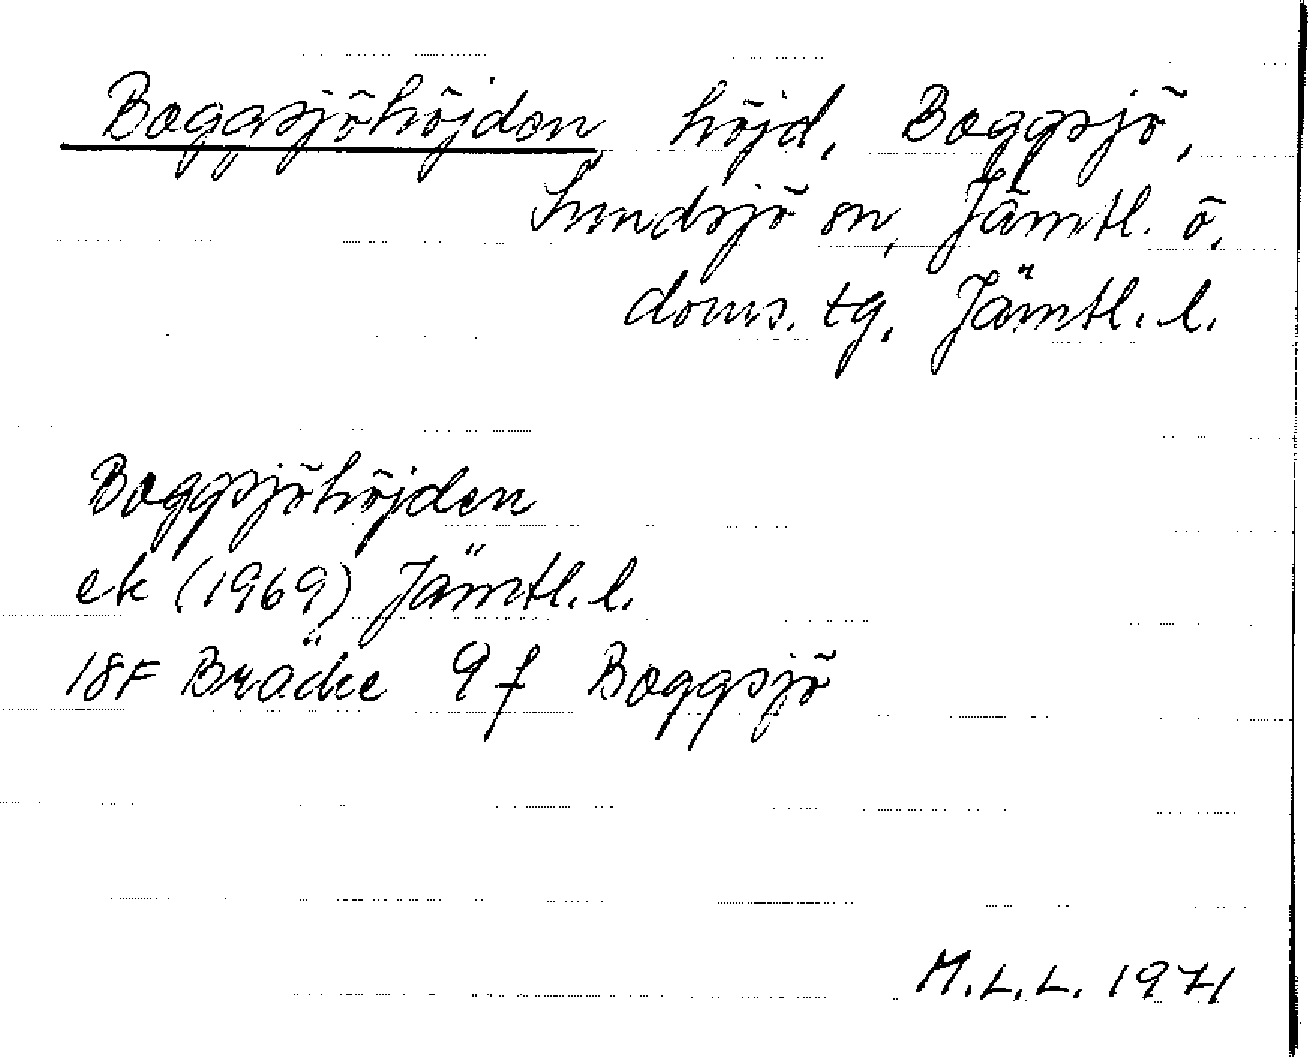 Boggsjöhöjden höjd, Boggsjö,
Sundsjö sn, Jämtl. ö.
doms. tg, Jämtl. l.
Boggsjöhöjden
ek (1969) Jämtl. l.
18F Bräcke 9f Boggsjö
M.L.L. 1971